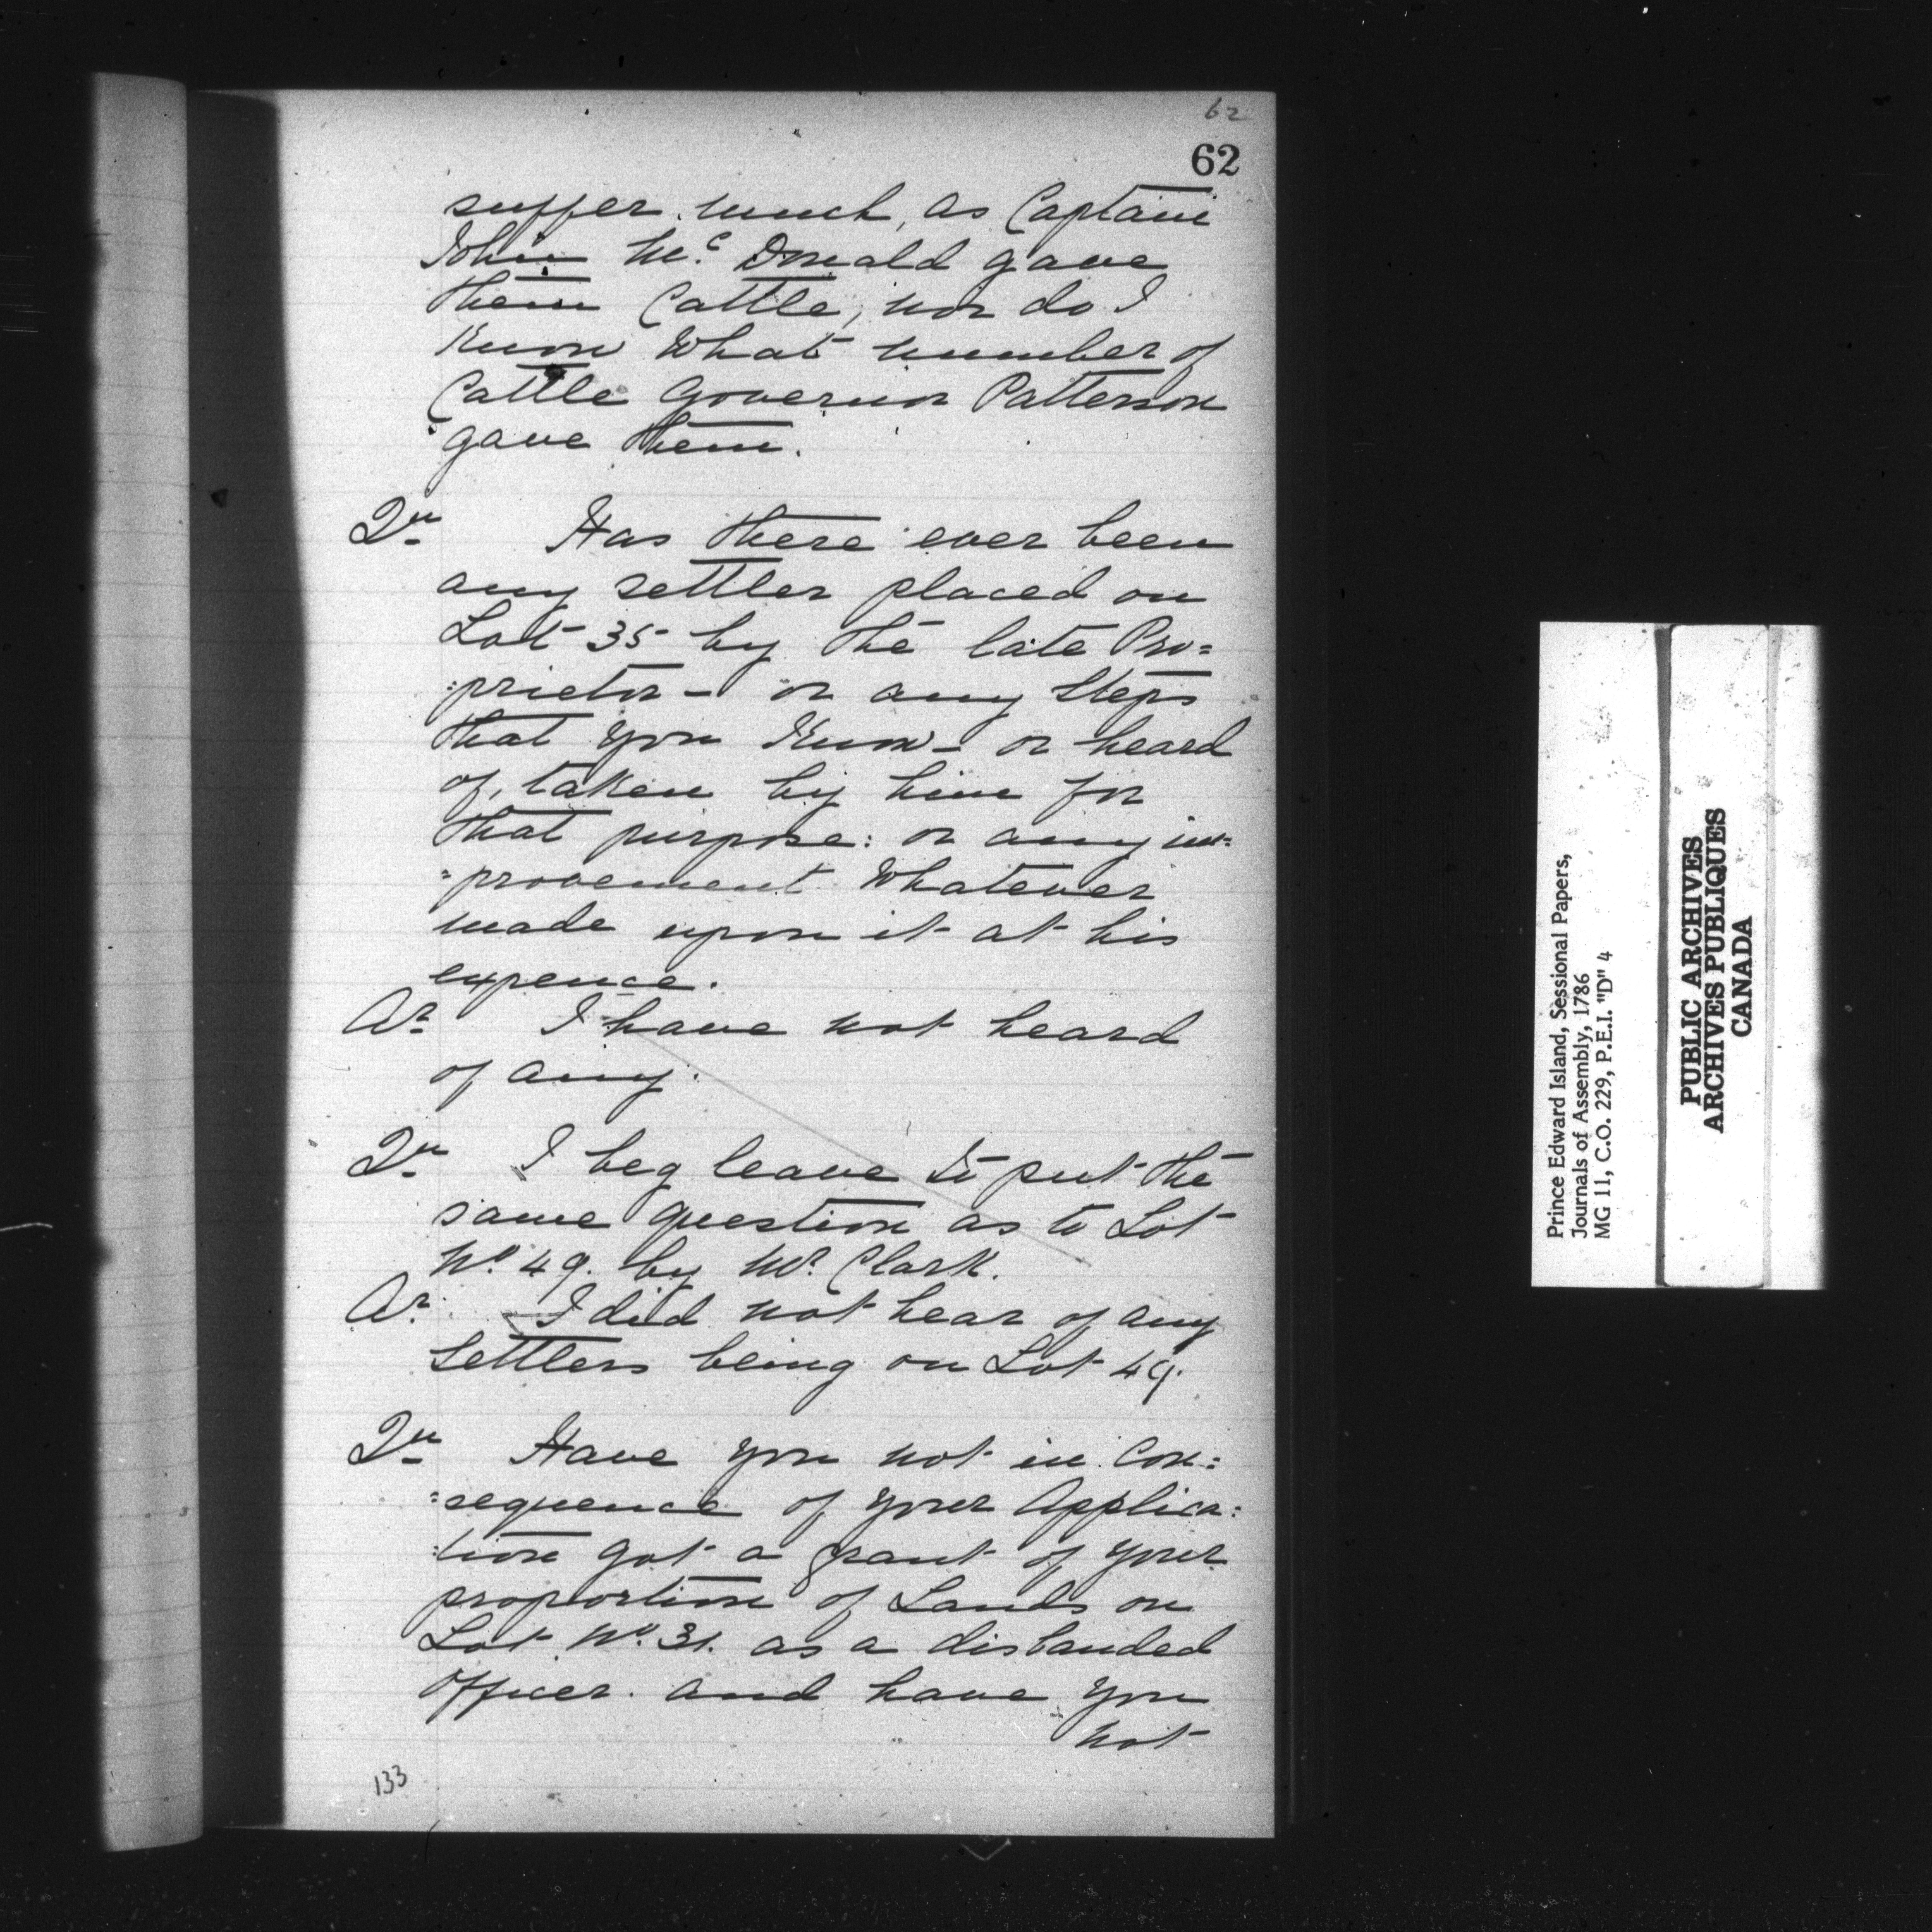 62
62
suffer much, as Captain
John Mc. Donald gave
them Cattle, nor do I
Know What number of
Cattle Governor Patterson
gave them.
Qn Has there ever been
any settler placed on
Lot 35 by the late Pro=
=prietor - or any Steps
that you Know - or heard
of, taken by him for
that purpose: or any im=
=provement Whatever
made upon it at his
expence.
Ar I have not heard
of any.
Qn I beg leave to put the
same question as to Lot
No. 49. by Mr. Clark.
Ar. I did not hear of any
Settlers being on Lot 49.
Qn Have you not in Con=
=sequence of your Applica=
=tion got a grant of your
proportion of Lands on
Lot No. 31. as a disbanded
Officer. and have you
not
133
Prince Edward Island, Sessional Papers,
Journals of Assembly, 1786
MG 11, C.O. 229, P.E.I. "D" 4
PUBLIC ARCHIVES
ARCHIVES PUBLIQUES
CANADA